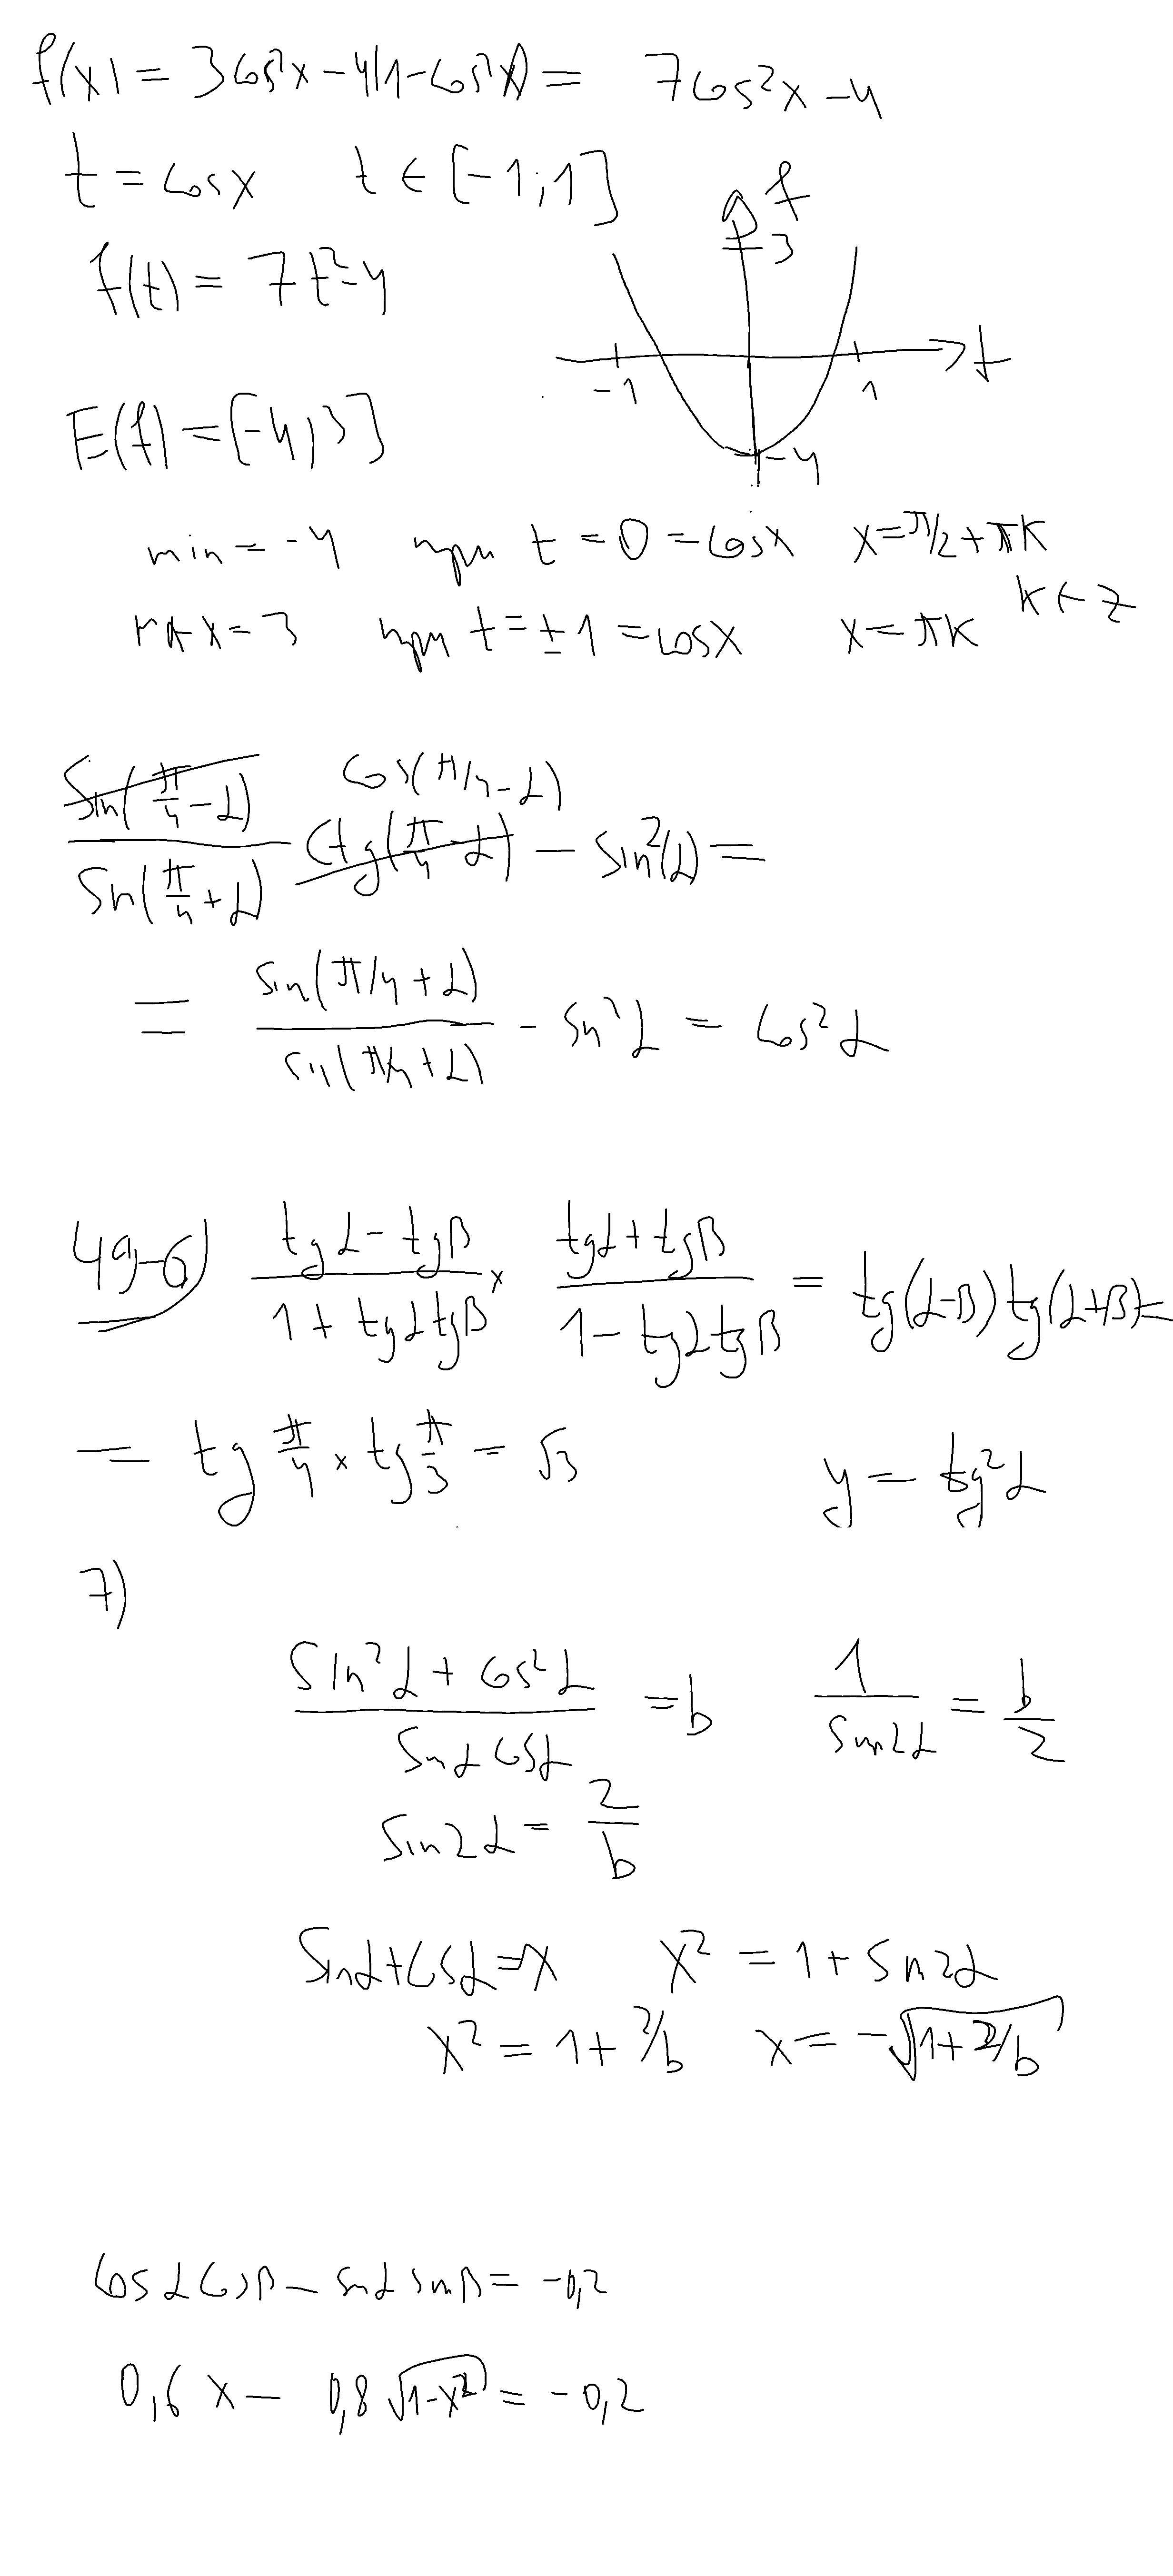 f(x) = 3cos²x - 4(1-cos²x) = 7cos²x - 4
t = cosx t ∈ [-1;1]
f
3
f(t) = 7t² - 4
t
-1 1
E(f) = [-4;3]
-4
min = -4 при t = 0 = cosx x = π/2 + πk
k ∈ z
max = 3 при t = ±1 = cosx x = πk
cos(π/4 - α)
sin(π/4 - α) / sin(π/4 + α) ctg(π/4 - α) - sin²(α) =
= sin(π/4 + α) / sin(π/4 + α) - sin²α = cos²α
49-6) (tgα - tgβ) / (1 + tgα tgβ) × (tgα + tgβ) / (1 - tgα tgβ) = tg(α-β) tg(α+β) =
= tg π/4 × tg π/3 = √3 y = tg²α
7)
(sin²α + cos²α) / (sinα cosα) = b 1 / sin2α = b/2
sin2α = 2/b
sinα + cosα = x x² = 1 + sin2α
x² = 1 + 2/b x = -√(1 + 2/b)
cosα cosβ - sinα sinβ = -0,2
0,6x - 0,8√(1-x²) = -0,2